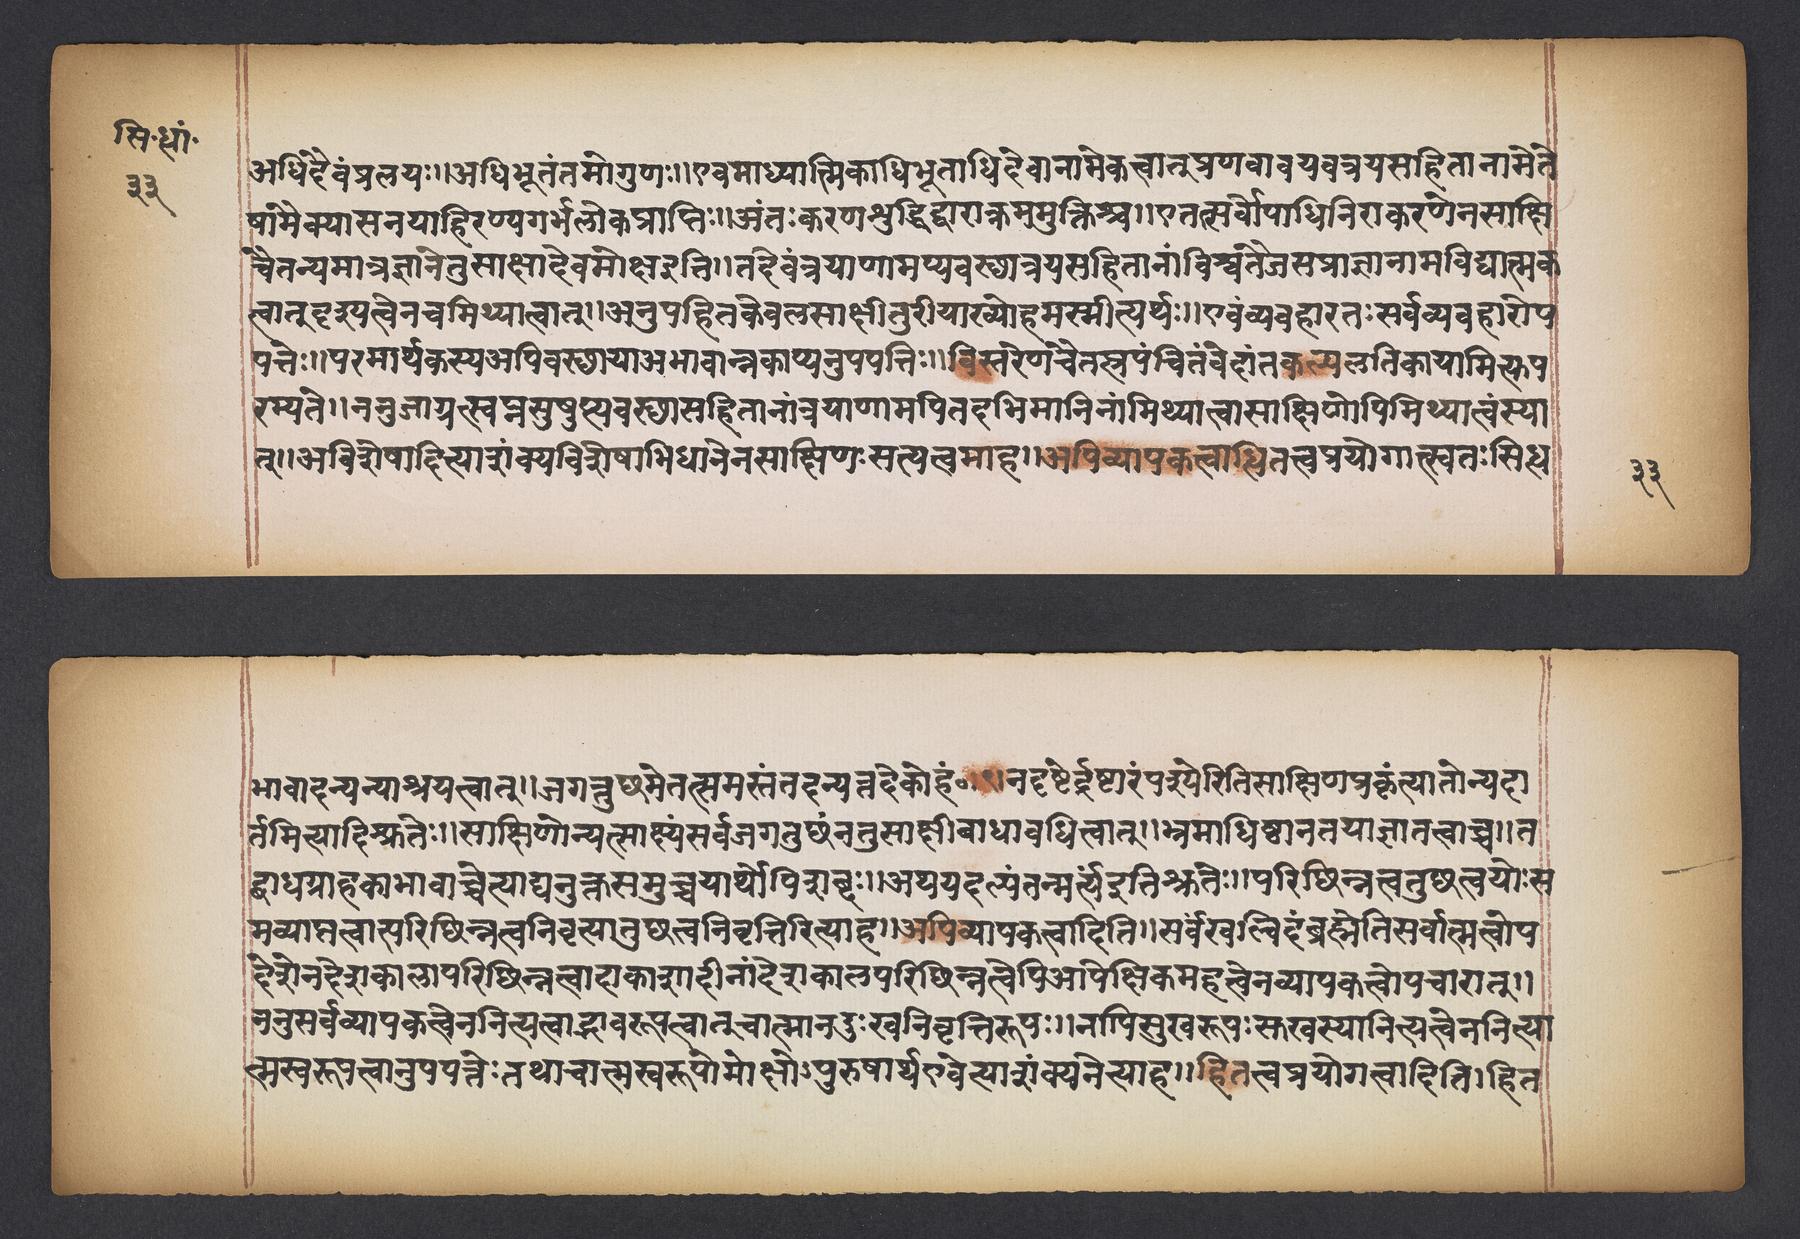 सि॰ध्धां॰
३३
अधिदैवंप्रलयः॥अधिभूतंतमोगुणः॥एवमाध्यात्मिकाधिभूताधिदैवानामेकत्वात्प्रणवावयवत्रयसहितानामेते
षामैक्यासनयाहिरण्यगर्भलोकप्राप्तिः॥अंतःकरणशुद्धिद्वाराक्रममुक्तिश्च॥एतत्सर्वोपाधिनिराकरणेनसाक्षि
चैतन्यमात्रज्ञानेतुसाक्षादेवमोक्षइति॥तदेवंत्रयाणामप्यवस्थात्रयसहितानांविश्वतैजसप्राज्ञानामविद्यात्मक
त्वात्दृश्यत्वेनचमिथ्यात्वात्॥अनुपहितकेवलसाक्षीतुरीयाख्योहमस्मीत्यर्थः॥एवंव्यवहारतःसर्वव्यवहारोप
पत्तेः॥परमार्थकस्यअपिवस्थायाअभावान्नकाप्यनुपपत्तिः॥विस्तरेणचैतत्प्रपंचितंवेदांतकल्पलतिकायामित्युप
रम्यते॥ननुजाग्रत्स्वप्नसुषुप्त्यवस्थासहितानांत्रयाणामपितदभिमानिनांमिथ्यात्वासाक्षिणोपिमिथ्यात्वंस्या
त्॥अविशेषादित्याशंक्यविशेषाभिधानेनसाक्षिणःसत्यत्वमाह॥अपिव्यापकत्वाध्धितत्वप्रयोगात्स्वतःसिध्ध
३३
भावादन्यन्याश्रयत्वात्॥जगत्तुछमेतत्समस्तंतदन्यत्तदेकोहं॰॥९॥नदृष्टेर्द्रष्टारंपश्येरितिसाक्षिणप्रकृंत्यातोन्यदा
र्तमित्यादिश्रुतेः॥साक्षिणोन्यत्साक्ष्यंसर्वंजगत्तुछंनतुसाक्षीबाधावधित्वात्॥भ्रमाधिष्ठानतयाज्ञातत्वाच्च॥त
द्बाधग्राहकाभावाच्चेत्याद्यनुक्तसमुच्चयार्थोपिशब्दः॥अथयदल्पंतन्मर्त्यइतिश्रुतेः॥परिछिन्नत्वतुछत्वयोःस
मव्याप्तत्वात्परिछिन्नत्वनिवृत्यातुछत्वनिवृत्तिरित्याह॥अपिव्यापकत्वादिति॥सर्वंखल्विदंब्रह्मेतिसर्वात्मत्वोप
देशेनदेशकालापरिछिन्नत्वादाकाशादीनांदेशकालपरिछिन्नत्वेपिआपेक्षिकमहत्वेनव्यापकत्वोपचारात्॥
ननुसर्वव्यापकत्वेननित्यत्वाद्भावरूपत्वात्चात्मानदुःखनिवृत्तिरूपः॥नापिसुखरूपःसुखस्यानित्यत्वेननित्या
त्मस्वरूपत्वानुपपत्तेःतथाचात्मस्वरूपोमोक्षोऽपुरुषार्थएवेत्याशंक्यनेत्याह॥हितत्वप्रयोगत्वादिति।हित